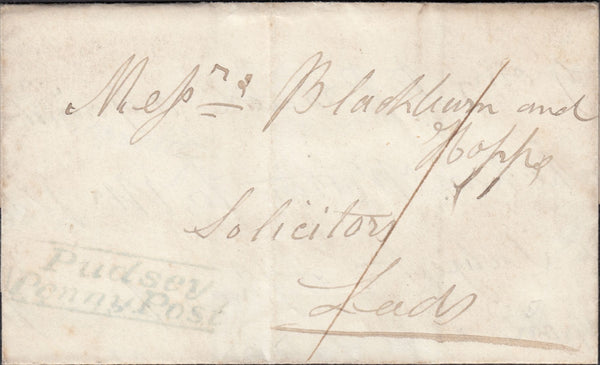 Messrs Blackburn and
Hopps
Solicitors
Leeds
Pudsey
Penny Post